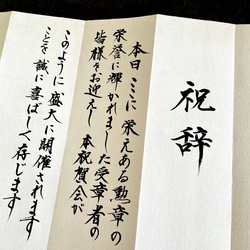 祝辞
本日ここに栄えある勲章の
栄誉に輝かれました受章者の
皆様をお迎えし 本祝賀会が
このように盛大に開催されます
ことを誠に喜ばしく存じます